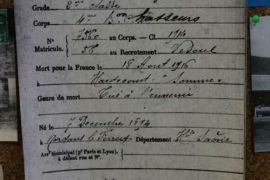 Grade 2me Classe
Corps 4me Bon Chasseurs
Nº au Corps. — Cl. 1914
Matricule. au Recrutement Vesoul
Mort pour la France le 18 Aout 1916
à Hardecourt "Somme"
Genre de mort Tué à l'ennemi
Né le 7 Decembre 1894
à Département Hte Saône
Arr municipal (pr Paris et Lyon),
à défaut rue et Nº.